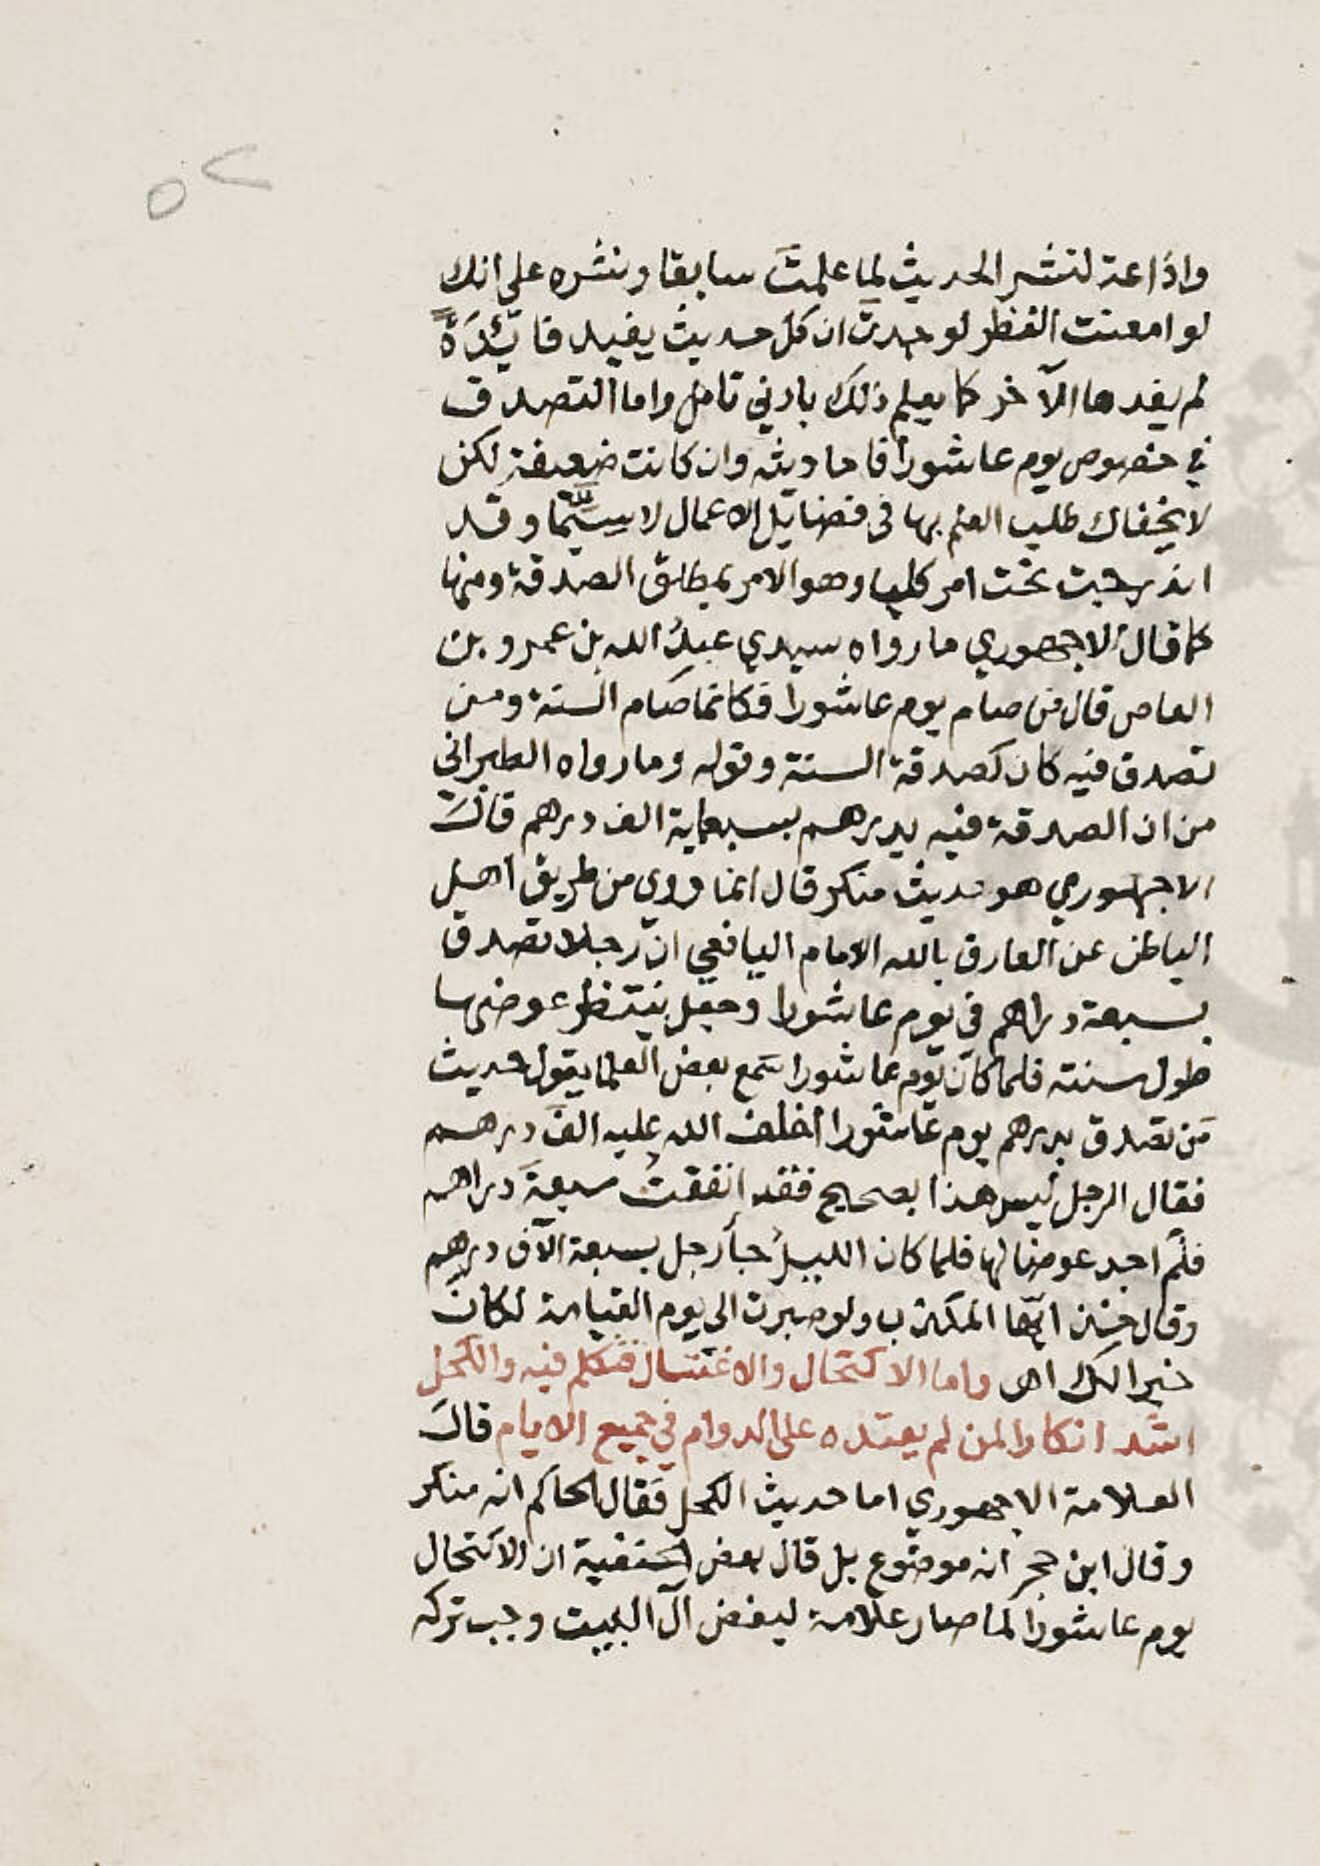 ٥٢
واذاعة لنشر الحديث لما علمتَ سابقا ونشره على انك
لو امعنت النظر لوجدت ان كل حديث يفيد فائدَةً
لم يفدها الآخر كما يعلم ذلك بادني تامل واما التصدق
في خصوص يوم عاشورا فاحاديثه وان كانت ضعيفة لكن
لا يخفاك طلب العلم بها في فضايل الاعمال لا سيَّما وقد
اندرجت تحت امر كلي وهو الامر بمطلق الصدقة ومنها
كما قال الاجهوري ما رواه سيدي عبدُ الله بن عمرو بن
العاص قال من صام يوم عاشورا فكانما صام السنة ومن
تصدق فيه كان كصدقة السنة وقوله وما رواه الطبراني
من ان الصدقة فيه بدرهم بسبعماية الف درهم قالَ
الاجهوري هو حديث منكر قال انما روي من طريق اهل
الباطن عن العارف بالله الامام اليافعي انّ رجلا تصدق
بسبعة دراهم في يوم عاشورا وجعل ينتظر عوضها
طول سنته فلما كان يوم عاشورا سمع بعض العلما يقول حديث
مَن تصدق بدرهم يوم عاشورا اخلف الله عليه الفَ درهم
فقال الرجل ليس هذا بصحيح فقد انفقتُ سبعةَ دراهم
فلم اجد عوضا لها فلما كان الليلُ جأ رجل بسبعة الآف درهم
وقال خذ ايها المكذب ولو صبرت الى يوم القيامة لكانَ
خيرا لك اهى واما الاكتحال والاغتسال فتكلم فيه والكحل
اشد انكارا لمن لم يعتده على الدوام في جميع الايام قالَ
العلامة الاجهوري اما حديث الكحل فقال الحاكم انه منكر
وقال ابن حجر انه موضوع بل قال بعض الحنفية ان الاكتحال
يوم عاشورا لما صار علامة لبغض آل البيت وجب تركه